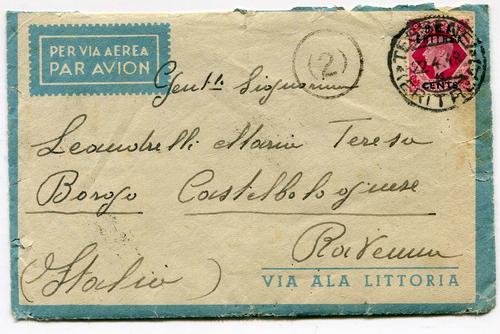 PER VIA AEREA
PAR AVION
(2)
Gent.ll Signorina
Leandrelli Maria Teresa
Borgo Castelbolognese
Ravenna
(Italia)
VIA ALA LITTORIA
CENTS